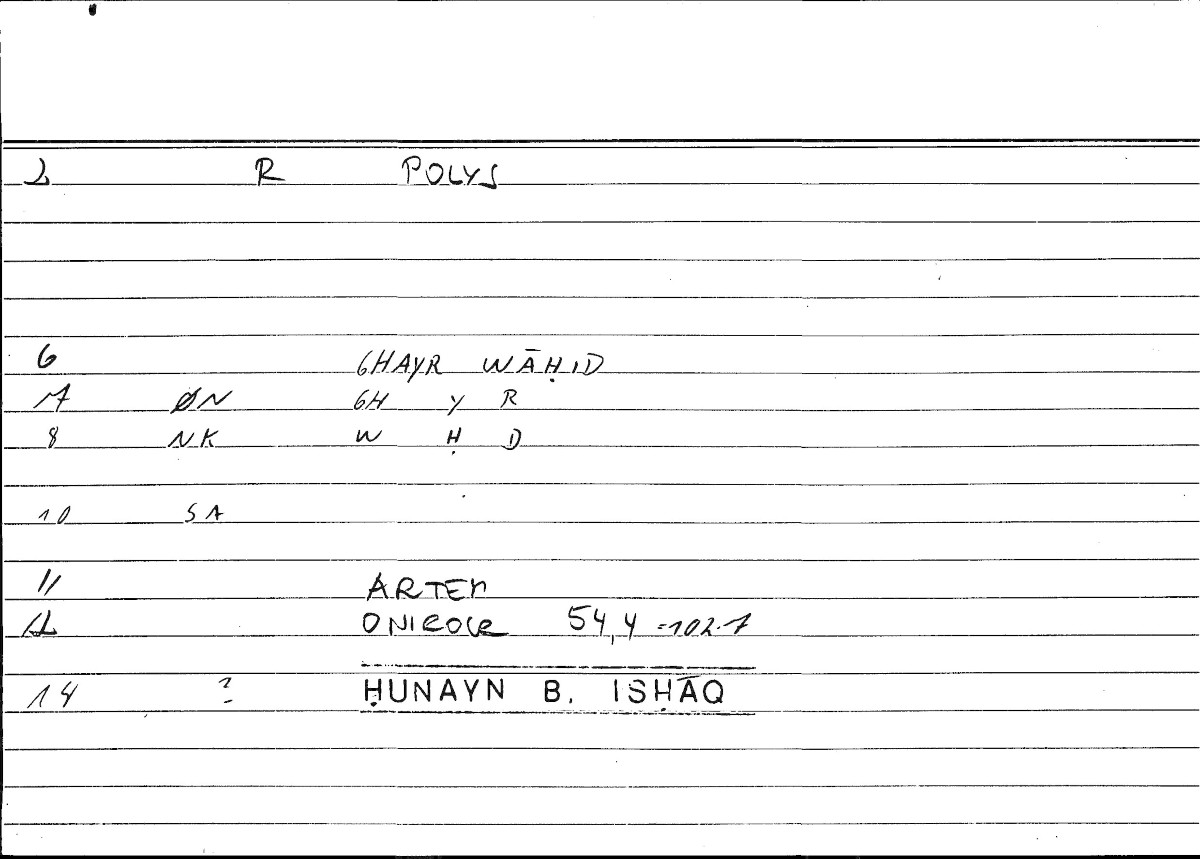 2 R POLYS
6 GHAYR WĀḤID
7 ØN GH Y R
8 NK W Ḥ D
10 SA
11 ARTEM
12 ONIROCR 54,4 =102.7
14 ? ḤUNAYN B. ISḤĀQ